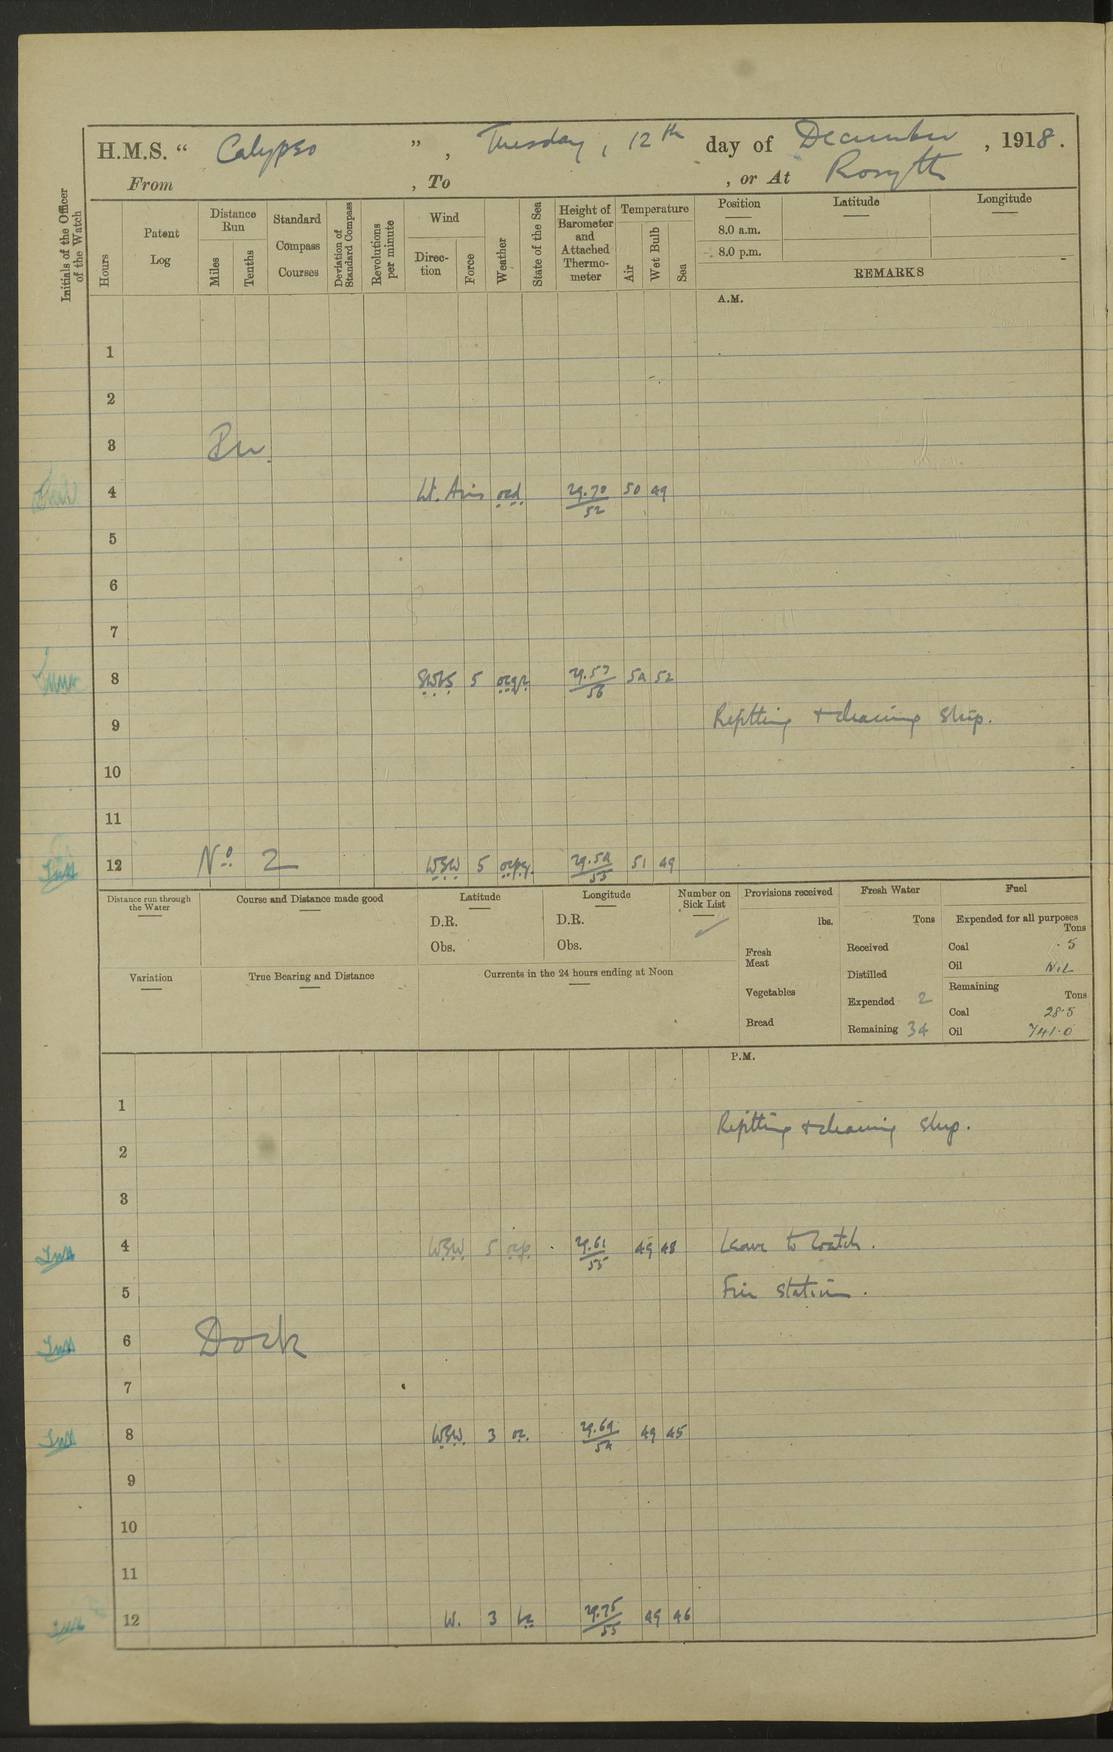 H.M.S. “ Calypso ” , Tuesday, 12th day of December , 1918.
From , To , or At Rosyth
Initials of the Officer of the Watch
Hours
Patent Log
Distance Run
Miles
Tenths
Standard Compass Courses
Deviation of Standard Compass
Revolutions per minute
Wind
Direc-tion
Force
Weather
State of the Sea
Height of Barometer and Attached Thermo-meter
Temperature
Air
Wet Bulb
Sea
Position
Latitude
Longitude
8.0 a.m.
8.0 p.m.
REMARKS
A.M.
1
2
3
4 Lt. Airs ocd 29.70/52 50 49
5
6
7
8 SWbS 5 ocqr 29.57/56 54 52
9 Refitting + cleaning ship.
10
11
12 No 2 WSW 5 ocpq. 29.54/55 51 49
Distance run through the Water
Course and Distance made good
Latitude
D.R.
Obs.
Longitude
D.R.
Obs.
Number on Sick List
Provisions received
lbs.
Fresh Meat
Vegetables
Bread
Fresh Water
Tons
Received
Distilled
Expended 2
Remaining 34
Fuel
Expended for all purposes
Tons
Coal .5
Oil Nil
Remaining
Tons
Coal 28.5
Oil 741.0
Variation
True Bearing and Distance
Currents in the 24 hours ending at Noon
P.M.
1
Refitting + cleaning ship.
2
3
4 WSW 5 ocp. 29.61/55 49 48 Leave to watch.
5 Fire stations.
6 Dock
7
8 WSW 3 oc. 29.69/54 49 45
9
10
11
12 W. 3 bc 29.75/55 49 46